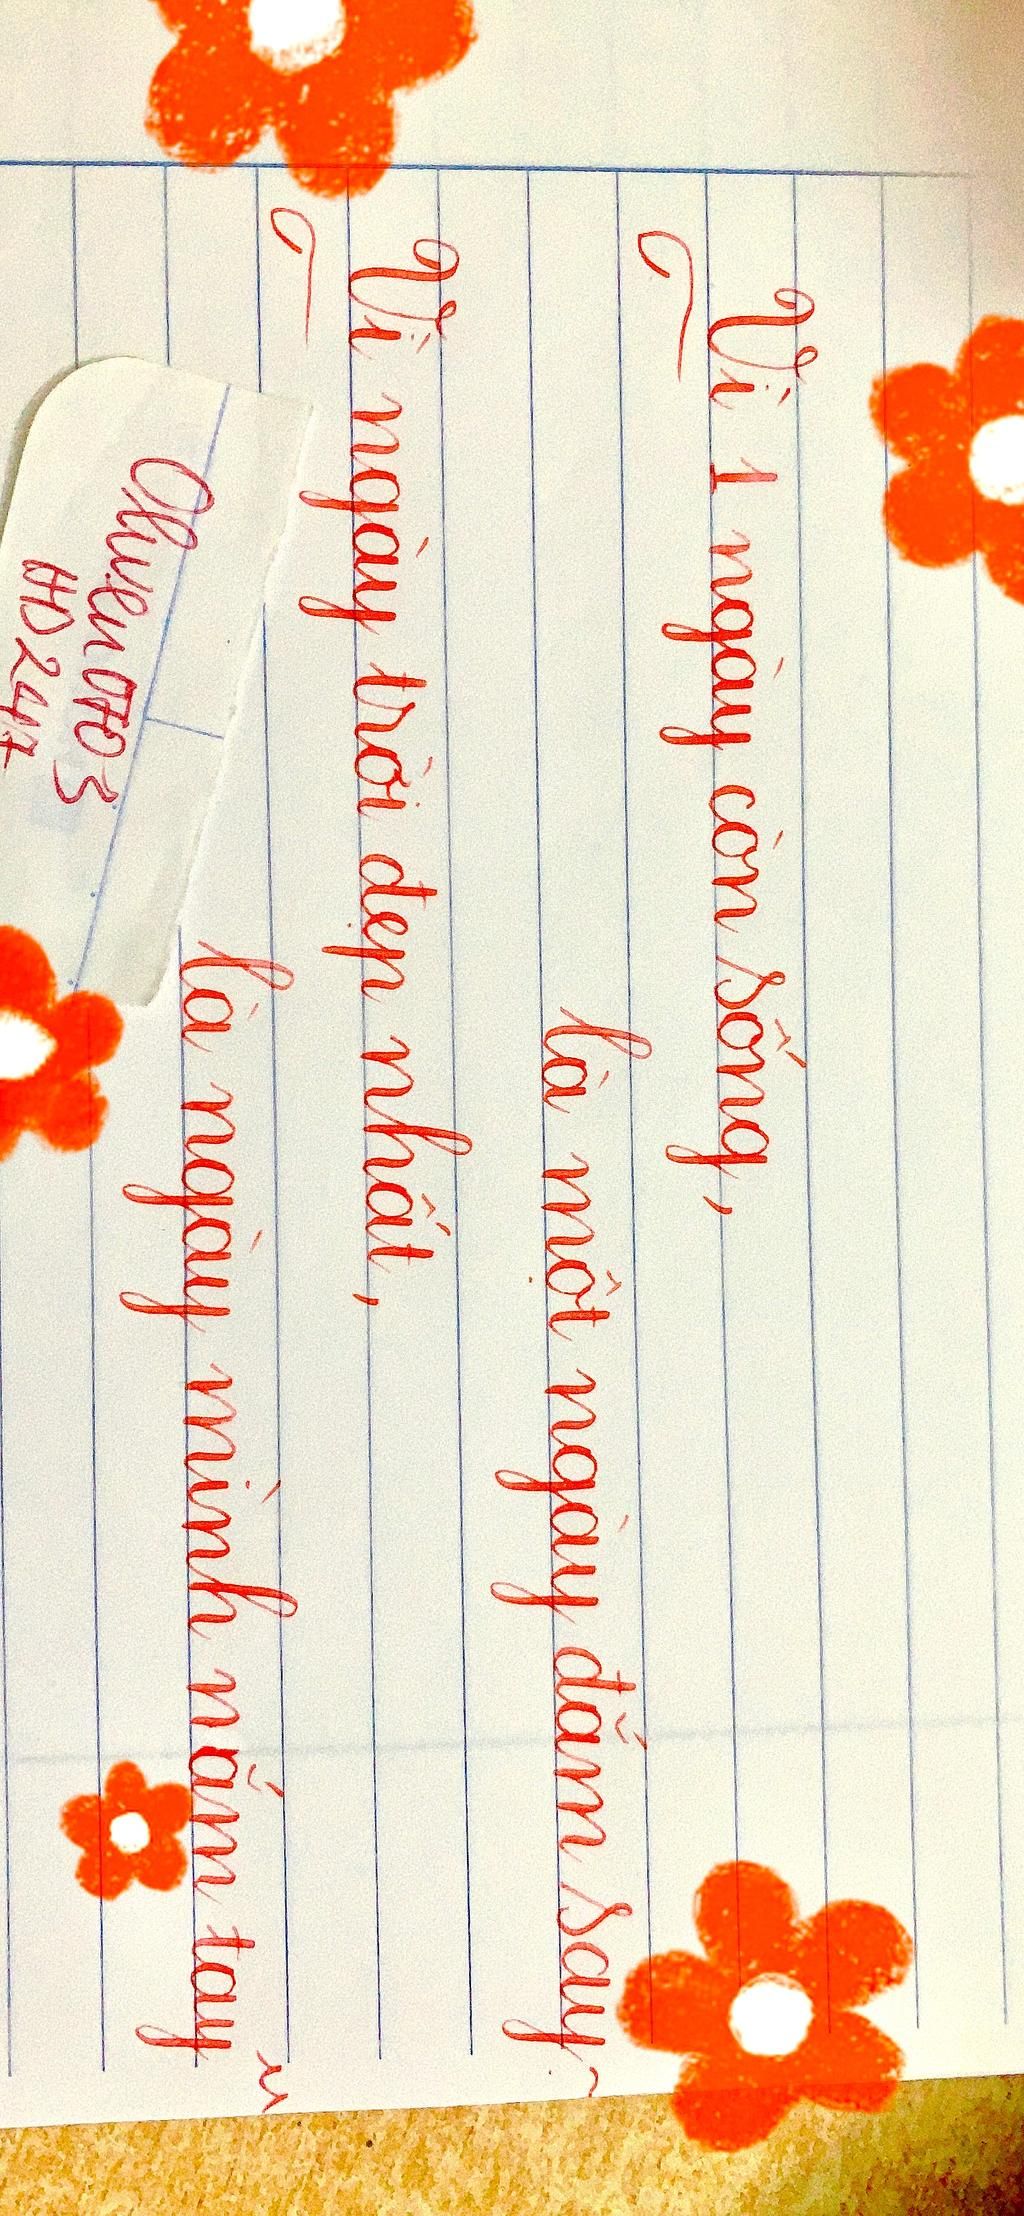 Vì 1 ngày còn sống,
là một ngày đắm say~
Vì ngày trời đẹp nhất,
là ngày mình nắm tay~
HD247